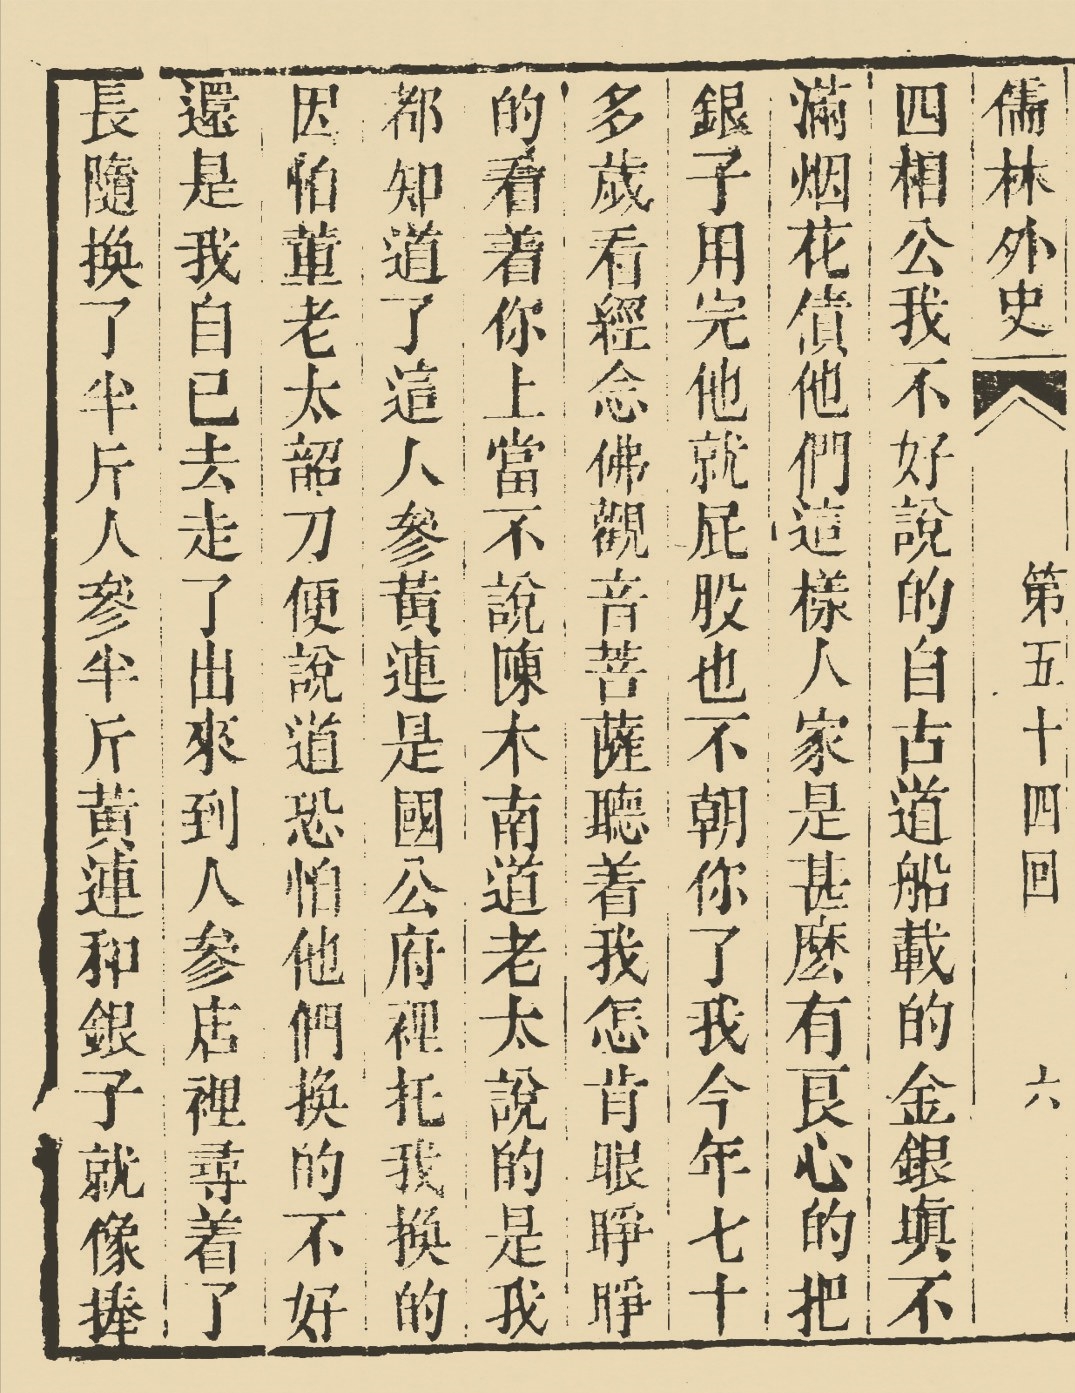 儒林外史 第五十四回 六
四相公我不好說的自古道船載的金銀塡不
滿烟花債他們這樣人家是甚麽有良心的把
銀子用完他就屁股也不朝你了我今年七十
多歲看經念佛觀音菩薩聽着我怎肯眼睜睜
的看着你上當不說陳木南道老太說的是我
都知道了這人參黃連是國公府裡托我換的
因怕董老太韶刀便說道恐怕他們換的不好
還是我自己去走了出來到人參店裡尋着了
長隨換了半斤人參半斤黃連和銀子就像捧